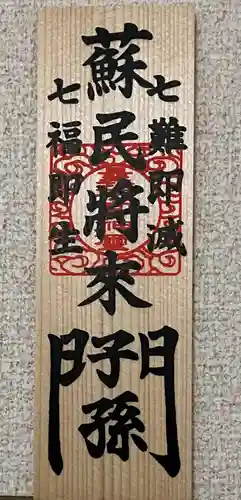 蘇民將来
子孫門
七難即滅
七福即生